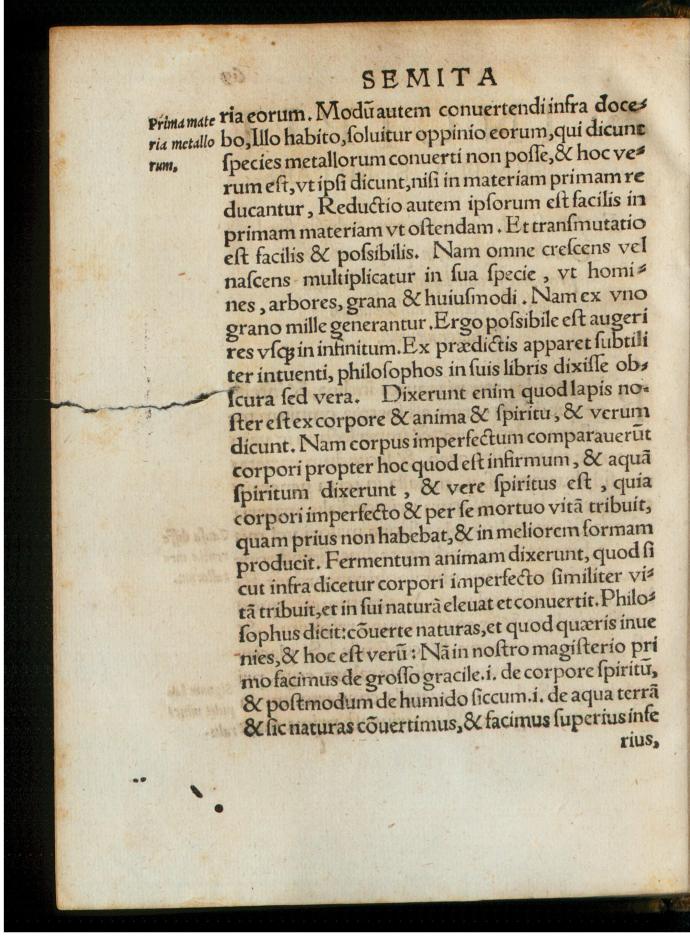 SEMITA
Prima mate
ria metallo
rum,
ria eorum. Modū autem conuertendi infra doce⸗
bo, Illo habito, ſoluitur oppinio eorum, qui dicunt
ſpecies metallorum conuerti non poſſe, & hoc ve⸗
rum eſt, vt ipſi dicunt, niſi in materiam primam re
ducantur, Reductio autem ipſorum eſt facilis in
primam materiam vt oſtendam. Et tranſmutatio
eſt facilis & poſsibilis. Nam omne creſcens vel
naſcens multiplicatur in ſua ſpecie, vt homi⸗
nes, arbores, grana & huiuſmodi. Nam ex vno
grano mille generantur. Ergo poſsibile eſt augeri
res vſqꝫ in infinitum. Ex prædictis apparet ſubtili
ter intuenti, philoſophos in ſuis libris dixiſſe ob⸗
ſcura ſed vera. Dixerunt enim quod lapis no⸗
ſter eſt ex corpore & anima & ſpiritu, & verum
dicunt. Nam corpus imperfectum comparauerūt
corpori propter hoc quod eſt infirmum, & aquā
ſpiritum dixerunt, & vere ſpiritus eſt, quia
corpori imperfecto & per ſe mortuo vitā tribuit,
quam prius non habebat, & in meliorem formam
producit. Fermentum animam dixerunt, quod ſi
cut infra dicetur corpori imperfecto ſimiliter vi⸗
tā tribuit, et in ſui naturā eleuat et conuertit. Philo⸗
ſophus dicit: cōuerte naturas, et quod quæris inue
nies, & hoc eſt verū: Nā in noſtro magiſterio pri
mo facimus de groſſo gracile .i. de corpore ſpiritū,
& poſtmodum de humido ſiccum .i. de aqua terrā
& ſic naturas cōuertimus, & facimus ſuperius infe
rius,